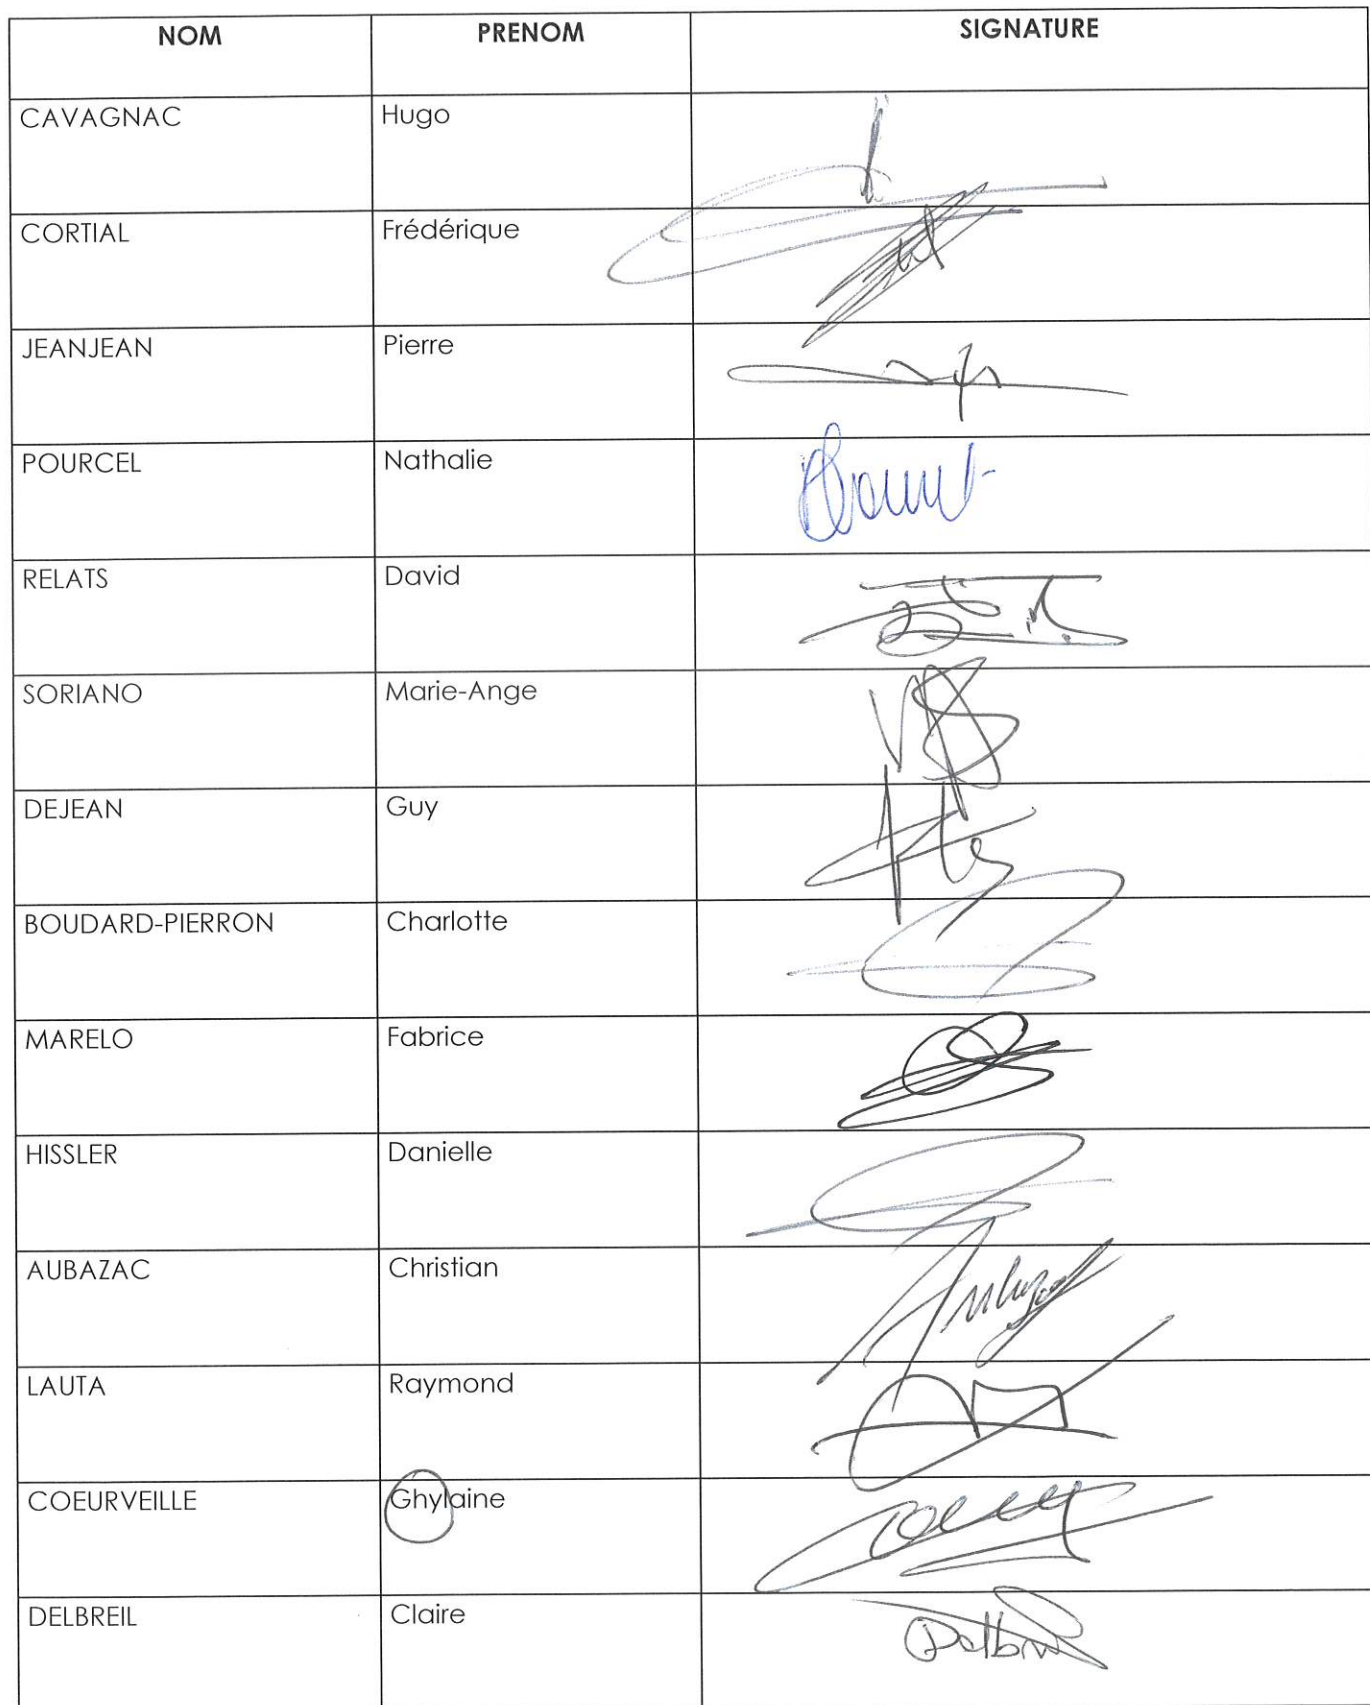 NOM PRENOM SIGNATURE
CAVAGNAC Hugo
CORTIAL Frédérique
JEANJEAN Pierre
POURCEL Nathalie
RELATS David
SORIANO Marie-Ange
DEJEAN Guy
BOUDARD-PIERRON Charlotte
MARELO Fabrice
HISSLER Danielle
AUBAZAC Christian
LAUTA Raymond
COEURVEILLE Ghylaine
DELBREIL Claire